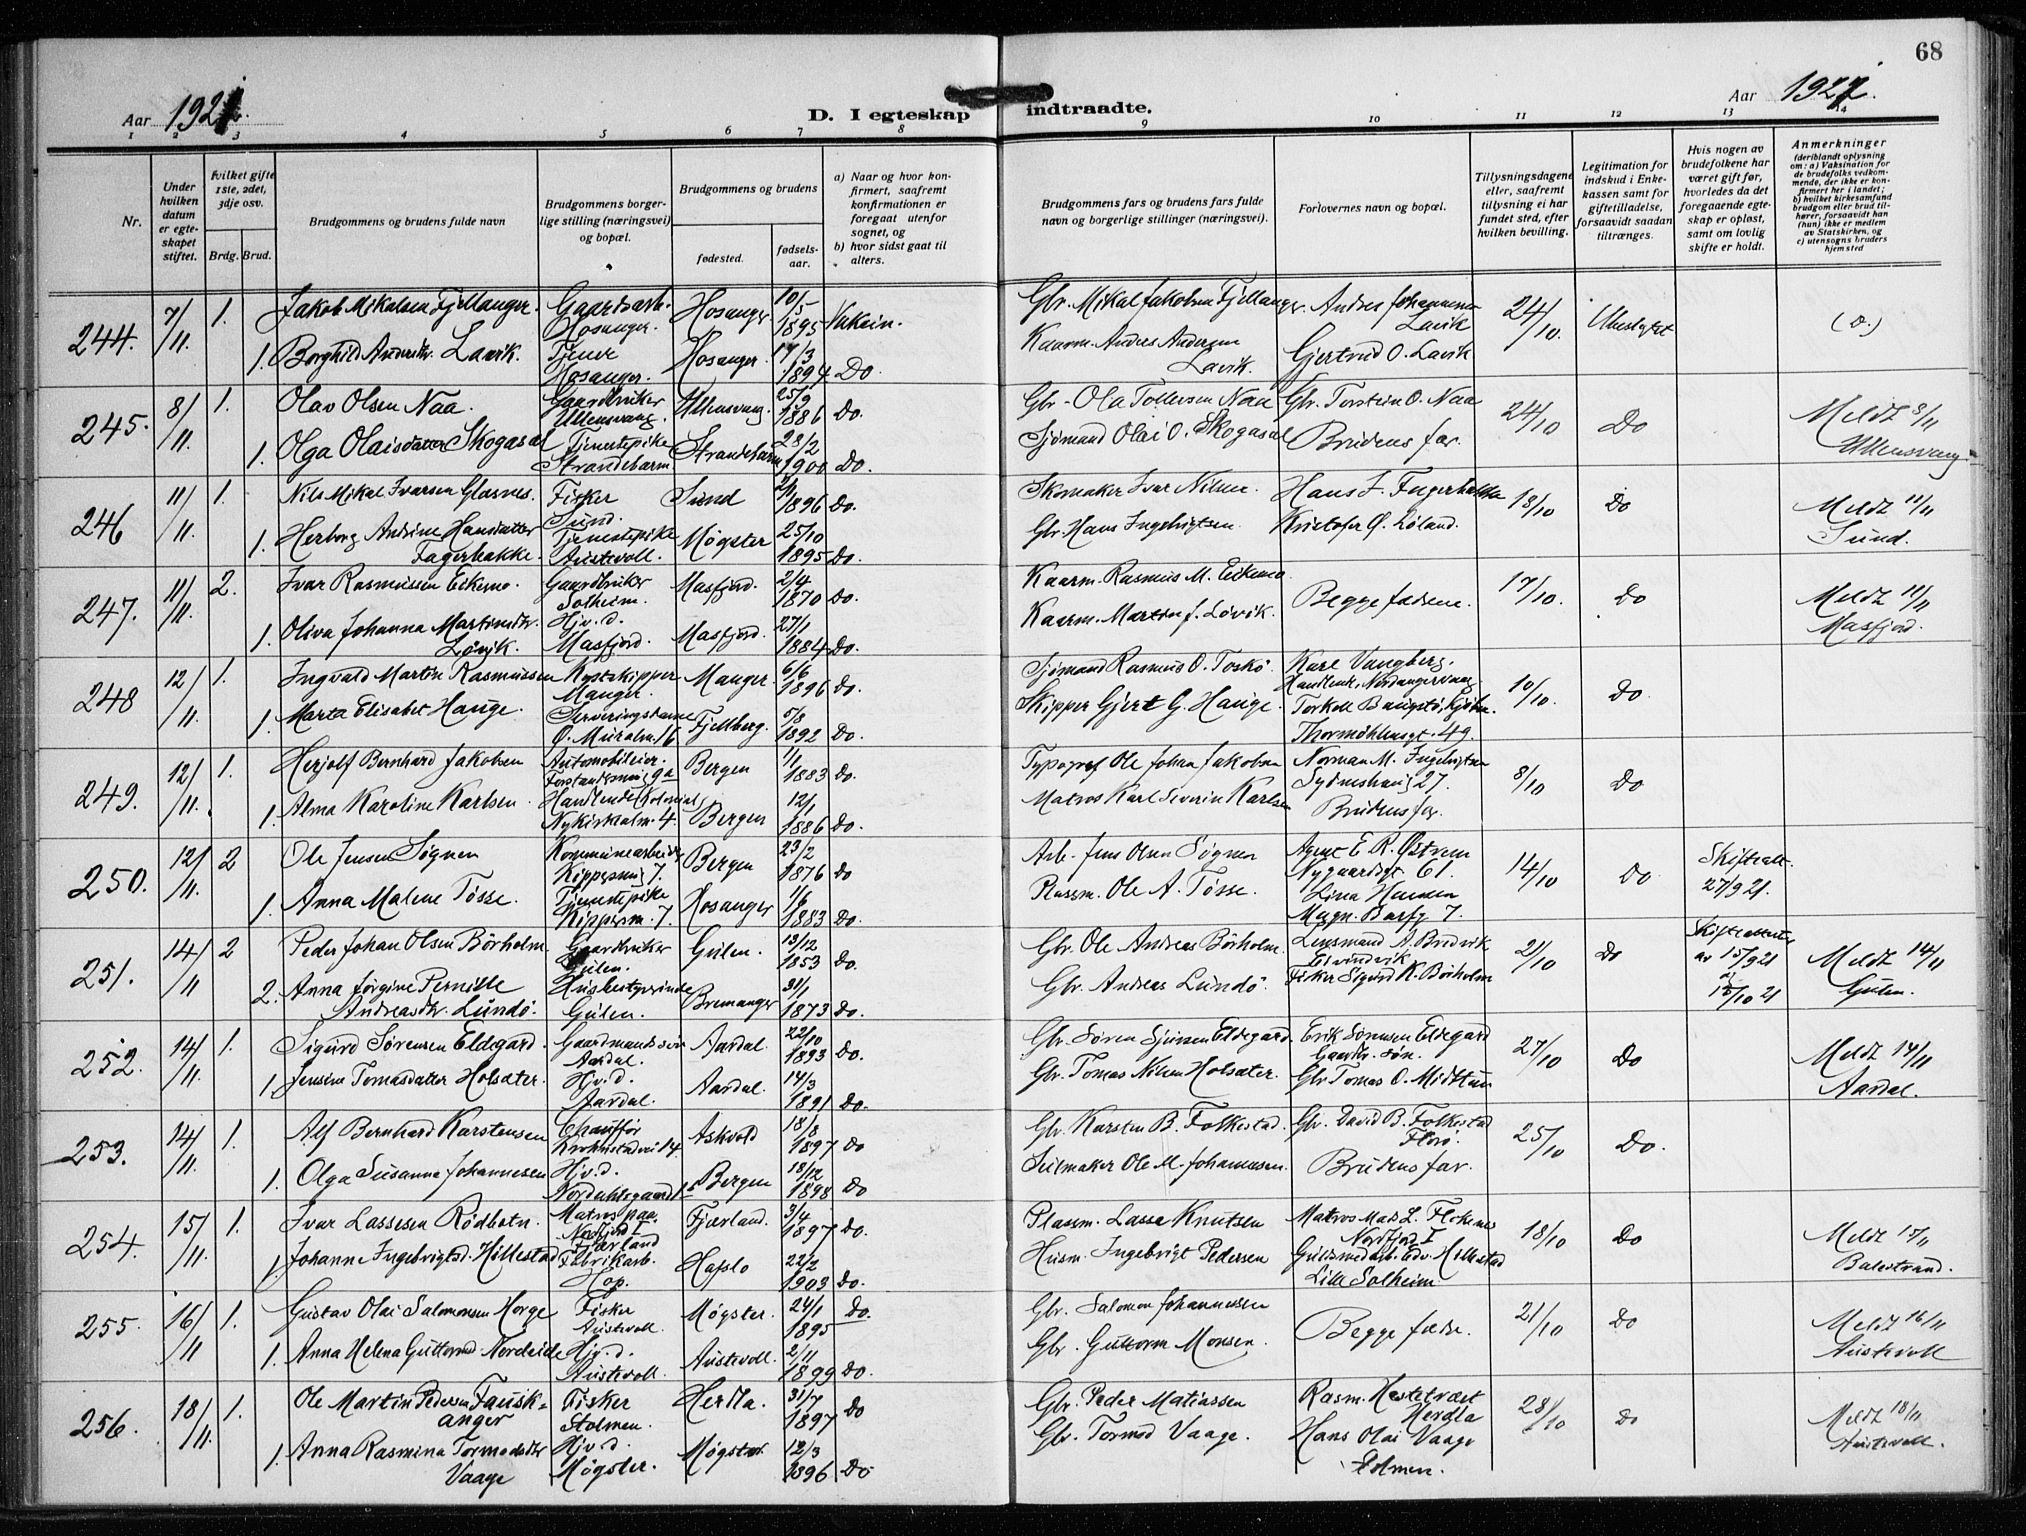 68
Aar 1921.
D. I egteskap indtraadte.
Aar 1921.
1 2 3 4 5 6 7 8 9 10 11 12 13 14
Nr.
Under hvilken datum er egteskapet stiftet.
Hvilket gifte 1ste, 2det, 3dje osv.
Brdg. Brud.
Brudgommens og brudens fulde navn
Brudgommens borgerlige stilling (næringsvei) og bopæl.
Brudgommens og brudens
fødested.
fødselsaar.
a) Naar og hvor konfirmert, saafremt konfirmationen er foregaat utenfor sognet, og
b) hvor sidst gaat til alters.
Brudgommens fars og brudens fars fulde navn og borgerlige stillinger (næringsvei).
Forlovernes navn og bopæl.
Tillysningsdagene eller, saafremt tillysning ei har fundet sted, efter hvilken bevilling.
Legitimation for indskud i Enkekassen samt for giftetilladelse, forsaavidt saadan tiltrænges.
Hvis nogen av brudefolkene har været gift før, hvorledes da det foregaaende egteskap er opløst, samt om lovlig skifte er holdt.
Anmerkninger
(deriblandt oplysning om: a) Vaksination for de brudefolks vedkommende, der ikke er konfirmert her i landet; b) hvilket kirkesamfund brudgom eller brud tilhører, forsaavidt han (hun) ikke er medlem av Statskirken, og c) utensogns bruders hjemsted
244. 7/11. 1. Jakob Mikalsen Fjellanger. Gaardsarb. Hosanger. Hosanger 10/5 1895 Gbr. Mikal Jakobsen Fjellanger. Andres Johannesen Lavik 24/10.
1. Borghild Andersdtr. Lavik. Tjener Hosanger. Hosanger. 17/3 1894 Do. Kaarm. Anders Andersen Lavik. Gjertrud O. Lavik
245. 8/11. 1. Olav Olsen Naa. Gaardbruker Ullensvang. Ullensvang. 25/9 1886 Do. Gbr. Ola Tollersen Naa Gbr. Torstein O. Naa 24/10 Do Meldt 8/11 Ullensvang.
1. Olga Olaisdatter Skogasæl Tjenestepike Strandebarm. Strandebarm 28/2 1900 Do. Sjømand Olai O. Skogasæl Brudens far.
246 11/11. 1. Nils Mikal Ivarsen Glæsnes. Fisker Sund. Sund 1896 Do. Skomaker Ivar Nilsen. Hans J. Fagerbakke 13/10 Do Meldt 11/11 Sund.
1. Herborg Andrine Hansdatter Fagerbakke. Tjenestepike Austevoll. Møgster 25/10 1895 Do. Gbr. Hans Ingebrigtsen. Kristofer Ø. Løland.
247. 11/11. 2. Ivar Rasmussen Eikemo. Gaardbruker Solheim. Masfjord. 2/4 1870 Do. Kaarm. Rasmus M. Eikemo. Begge fædrene. 17/10. Do Meldt 11/11 Masfjord.
1. Oliva Johanna Martinsdtr. Løvik. Hjv. d. Masfjord. Masfjord. 27/1 1884 Do. Kaarm. Martin J. Løvik.
248 12/11. 1. Ingvald Martin Rasmussen Kystskipper Manger. Manger. 6/6 1896 Do. Sjømand Rasmus O. Toskø. Karl Vangberg. Handlende, Nordangervang 10/10. Do.
1. Marta Elisabet Hauge. Serveringsdame Ø. Muralm. 16 Fjellberg. 5/8 1892 Do. Skipper Gjert G. Hauge. Torkell Baugstø, Kjøbm. Thormøhlensgt. 49.
249. 12/11. 1. Herjolf Bernhard Jakobsen Automobileier. Forstandersmug 9a Bergen 1/1 1883 Do. Typograf Ole Johan Jakobsen Norman M. Ingebrigtsen Sydneshaug 27. 8/10 Do
1. Alma Karoline Karlsen. Handlende (Kolonial) Nykirkealm. 4. Bergen 12/1 1886 Do. Matros Karl Severin Karlsen Brudens far.
250. 12/11. 2 Ole Jensen Søgnen Kommunearbeider Kippersmug 7. Bergen 23/2 1876 Do Arb. Jens Olsen Søgnen Agent E. R. Østrem Nygaardsgt 61. 14/10 Do. Skifteatt. 27/9 21.
1. Anna Malene Tøsse. Tjenestepike Kipperm. 7. Hosanger 1/6 1883 Do. Plassm. Ole A. Tøsse. Lina Hansen Magn. Barfg 7.
251. 14/11 2 Peder Johan Olsen Børholm. Gaardbruker Gulen. Gulen. 13/12 1853 Do. Gbr. Ole Andreas Børholm. Lensmand A. Bredvik Eivindvik 21/10 Do Skifteattester av 15/9 21 og 15/10 21 Meldt 14/11 Gulen.
2. Anna Jørgine Pernille Andreasdtr. Lundø. Husbestyrerinde Gulen. Bremanger 31/1 1873 Do. Gbr. Andreas Lundø. Fisker Sigurd K. Børholm
252. 14/11. 1. Sigurd Sørensen Eldegard. Gaardmandssøn Aardal. Aardal. 22/10 1893 Do. Gbr. Søren Sjursen Eldegard. Erik Sørensen Eldegard Gaardbr. søn. 27/10 Do Meldt 14/11 Aardal.
1. Jensine Tomasdatter Holsæter. Hjv. d. Aardal. Aardal. 14/3 1891 Do. Gbr. Tomas Nilsen Holsæter. Gbr Tomas O. Midttun
253. 14/11. 1. Alf Bernhard Karstensen Chauffør Krohnstadvei 14. Askvold 18/8 1897 Do Gbr. Karsten B. Folkestad. Gbr. David B. Folkestad Florø. 25/10 Do.
1. Olga Susanna Johannesen Hjv. d. Nordahlsgaard Bergen 18/12 1898 Do Seilmaker Ole M. Johannesen. Brudens far.
254. 15/11. 1. Ivar Lassesen Rødbotn. Matros paa Nordfjord I Fjærland Fjærland. 3/4 1897 Do. Plassm. Lasse Knutsen Matros Mads L. Flokenes Nordfjord I 18/10 Do Meldt 15/11 Balestrand.
1. Johanne Ingebrigtsd. Hillestad Fabrikarb. Hop. Hafslo 22/2 1903 Do. Husm. Ingebrigt Pedersen Guldsmedarb. Edv. Hillestad Lille Solheim
255. 16/11 1. Gustav Olai Salomonsen Horge Fisker Austevoll. Møgster. 24/1 1895 Do. Gbr. Salomon Johannessen Begge fædre. 21/10 Do Meldt 16/11 Austevoll
1. Anna Helena Guttormsd Nordeide Hjv. d. Austevoll. Austevoll. 2/11 1899 Do. Gbr. Guttorm Monsen.
256. 18/11. 1. Ole Martin Pedersen Fauskanger Fisker Stolmen. Herdla. 31/7 1897 Do Gbr. Peder Matiassen Rasm. Hestetræet Herdla 28/10 Do Meldt 18/11 Austevoll.
1. Anna Rasmina Tormodsdtr Vaage Hjv. d. Møgster. Møgster 12/3 1896 Do Gbr. Tormod Vaage. Hans Olai Vaage Stolmen.